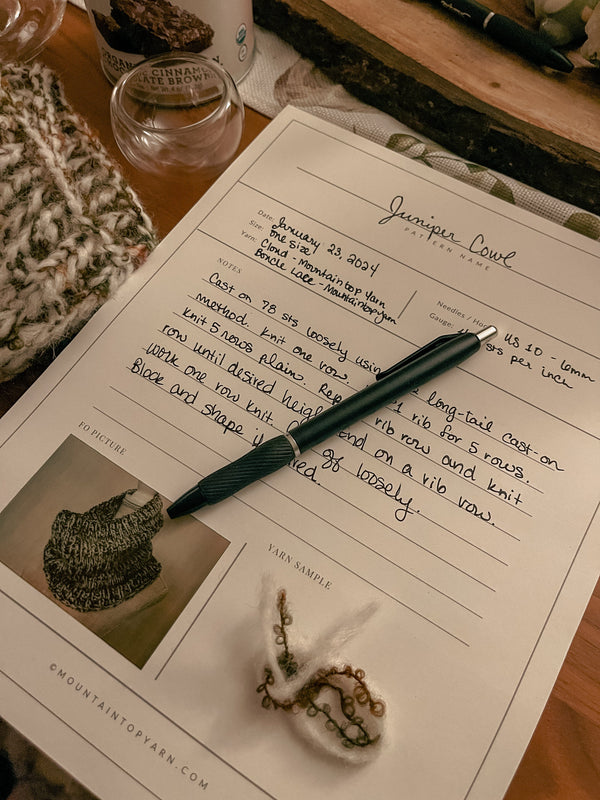 ORGANIC
CINNAMON
CHOCOLATE BROWN
Juniper Cowl
PATTERN NAME
Date: January 23, 2024
Size: one size
Yarn: Cloud - Mountaintop Yarn
Boucle Lace - Mountaintopyarn
Needles / Hook US 10 - 6mm
Gauge: sts per inch
NOTES
Cast on 78 sts loosely using long-tail cast-on
method. Knit one row. 1 rib for 5 rows.
Knit 5 rows plain. Rep rib row and knit
row until desired heigh end on a rib row.
Work one row knit. off loosely.
Block and shape
FO PICTURE
YARN SAMPLE
©MOUNTAINTOPYARN.COM